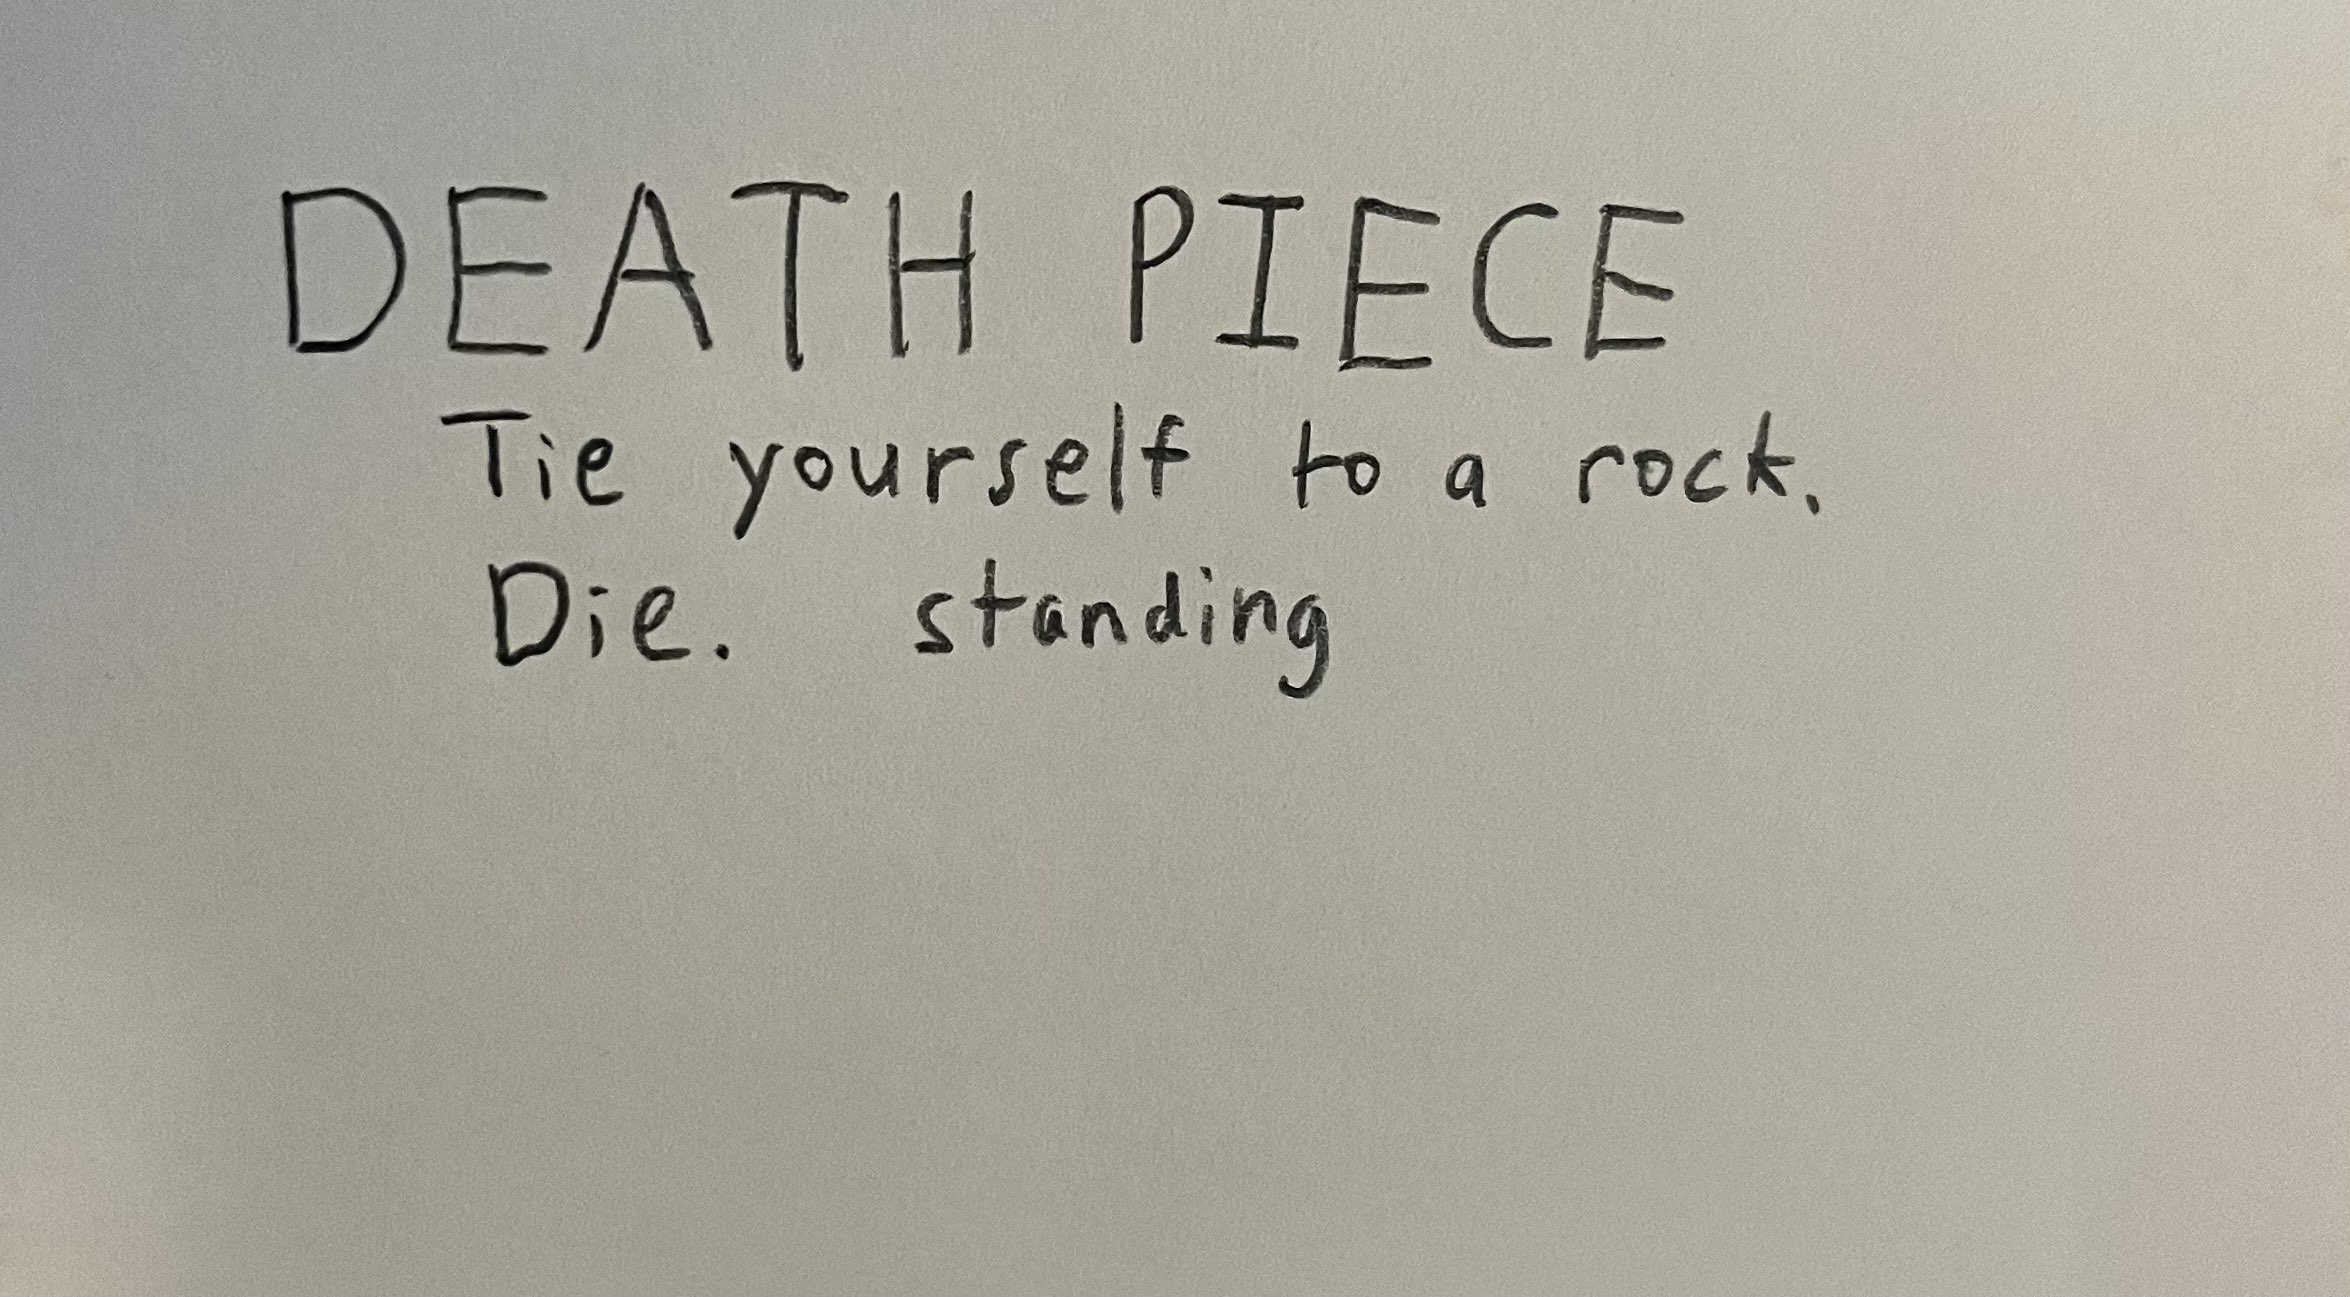 DEATH PIECE
Tie yourself to a rock.
Die. standing